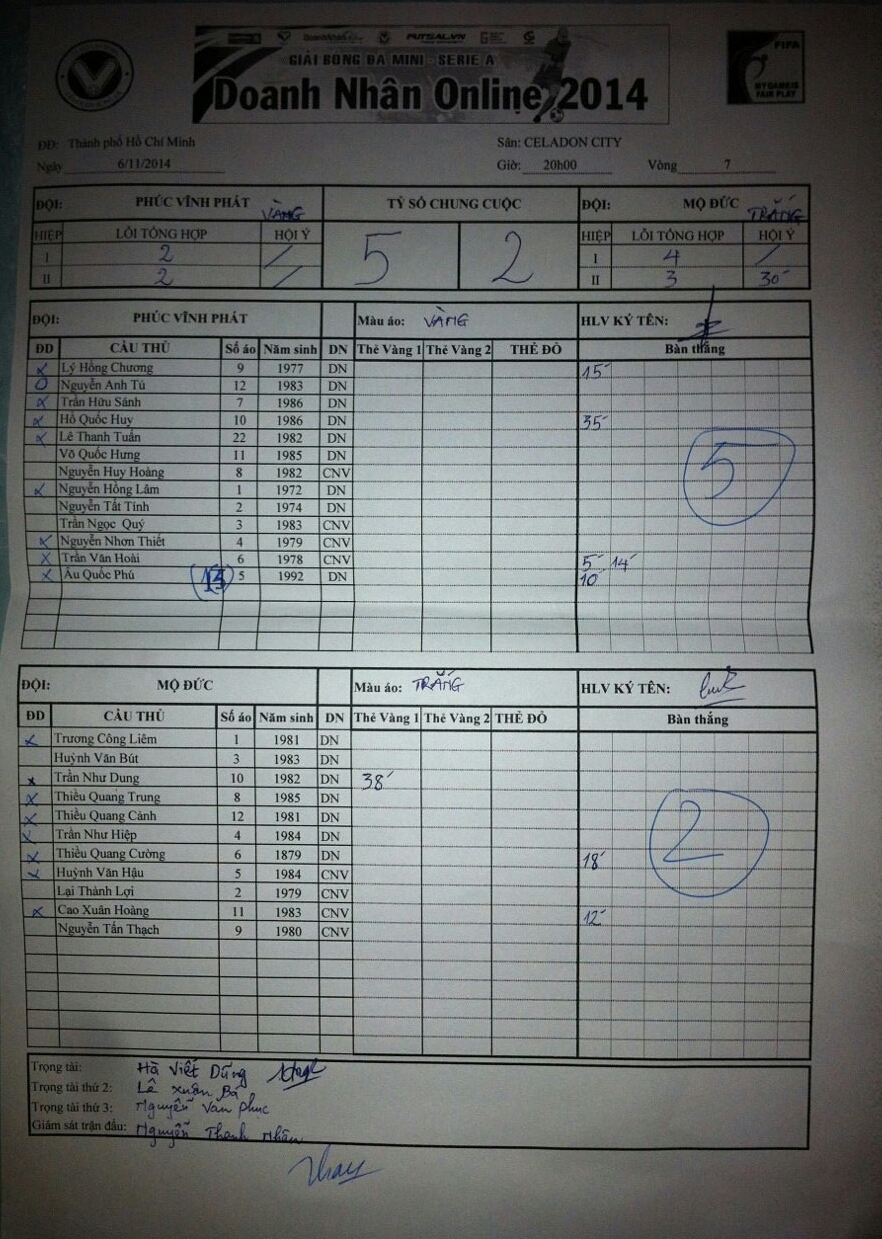 DoanhNhân FUTSAL.VN
GIẢI BÓNG ĐÁ MINI - SERIE A
Doanh Nhân Online 2014
FIFA
MY GAME IS
FAIR PLAY
ĐĐ: Thành phố Hồ Chí Minh Sân: CELADON CITY
Ngày 6/11/2014 Giờ: 20h00 Vòng 7
ĐỘI: PHÚC VĨNH PHÁT VÀNG TỶ SỐ CHUNG CUỘC ĐỘI: MỘ ĐỨC TRẮNG
HIỆP LỖI TỔNG HỢP HỘI Ý 5 2 HIỆP LỖI TỔNG HỢP HỘI Ý
I 2 / I 4 /
II 2 / II 3 30'
ĐỘI: PHÚC VĨNH PHÁT Màu áo: VÀNG HLV KÝ TÊN:
ĐD CẦU THỦ Số áo Năm sinh DN Thẻ Vàng 1 Thẻ Vàng 2 THẺ ĐỎ Bàn thắng
x Lý Hồng Chương 9 1977 DN 15'
O Nguyễn Anh Tú 12 1983 DN
x Trần Hữu Sánh 7 1986 DN
x Hồ Quốc Huy 10 1986 DN 35'
x Lê Thanh Tuấn 22 1982 DN
Võ Quốc Hưng 11 1985 DN 5
Nguyễn Huy Hoàng 8 1982 CNV
x Nguyễn Hồng Lâm 1 1972 DN
Nguyễn Tất Tính 2 1974 DN
Trần Ngọc Quý 3 1983 CNV
x Nguyễn Nhơn Thiết 4 1979 CNV
x Trần Văn Hoài 6 1978 CNV 5' 14'
x Âu Quốc Phú 5 1992 DN 10'
ĐỘI: MỘ ĐỨC Màu áo: TRẮNG HLV KÝ TÊN:
ĐD CẦU THỦ Số áo Năm sinh DN Thẻ Vàng 1 Thẻ Vàng 2 THẺ ĐỎ Bàn thắng
x Trương Công Liêm 1 1981 DN
Huỳnh Văn Bút 3 1983 DN
x Trần Như Dung 10 1982 DN 38'
x Thiều Quang Trung 8 1985 DN
x Thiều Quang Cảnh 12 1981 DN 2
x Trần Như Hiệp 4 1984 DN
x Thiều Quang Cường 6 1879 DN 18'
x Huỳnh Văn Hậu 5 1984 CNV
Lại Thành Lợi 2 1979 CNV
x Cao Xuân Hoàng 11 1983 CNV 12'
Nguyễn Tấn Thạch 9 1980 CNV
Trọng tài: Hà Viết Dũng
Trọng tài thứ 2: Lê Xuân Bá
Trọng tài thứ 3: Nguyễn Văn Phục
Giám sát trận đấu: Nguyễn Thanh Nhân